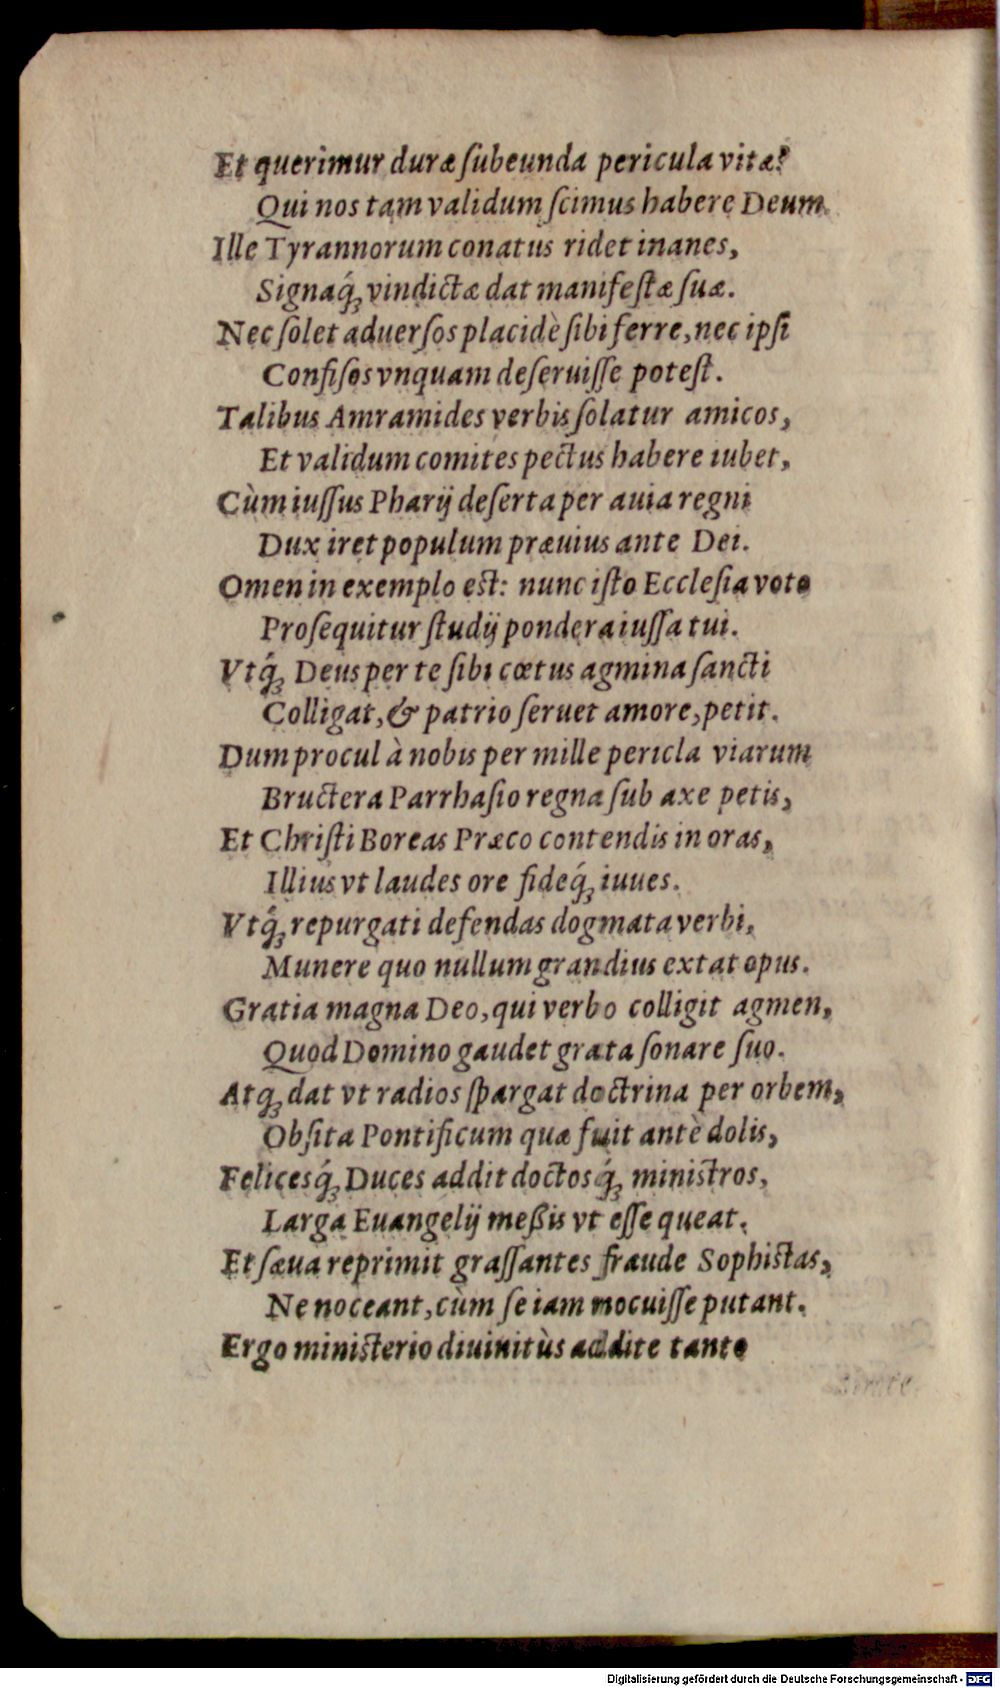 Et querimur duræ ſubeunda pericula vitæ?
Qui nos tam validum ſcimus habere Deum.
Ille Tyrannorum conatus ridet inanes,
Signaq́; vindictæ dat manifeſtæ ſuæ.
Nec ſolet aduerſos placidè ſibi ferre, nec ipſi
Confiſos vnquam deſeruiſſe poteſt.
Talibus Amramides verbis ſolatur amicos,
Et validum comites pectus habere iubet,
Cùm iuſſus Pharij deſerta per auia regni
Dux iret populum præuius ante Dei.
Omen in exemplo eſt: nunc iſto Eccleſia voto
Proſequitur ſtudij pondera iuſſa tui.
Vtq́; Deus per te ſibi cœtus agmina ſancti
Colligat, & patrio ſeruet amore, petit.
Dum procul à nobis per mille pericla viarum
Bructera Parrhaſio regna ſub axe petis,
Et Chriſti Boreas Præco contendis in oras,
Illius vt laudes ore fideq́; iuues.
Vtq́; repurgati defendas dogmata verbi,
Munere quo nullum grandius extat opus.
Gratia magna Deo, qui verbo colligit agmen,
Quod Domino gaudet grata ſonare ſuo.
Atq; dat vt radios ſpargat doctrina per orbem,
Obſita Pontificum quæ fuit antè dolis,
Felicesq́; Duces addit doctosq́; miniſtros,
Larga Euangelij meßis vt eſſe queat.
Et ſæua reprimit graſſantes fraude Sophiſtas,
Ne noceant, cùm ſe iam nocuiſſe putant.
Ergo miniſterio diuinitùs addite tanto
Digitalisierung gefördert durch die Deutsche Forschungsgemeinschaft - DFG